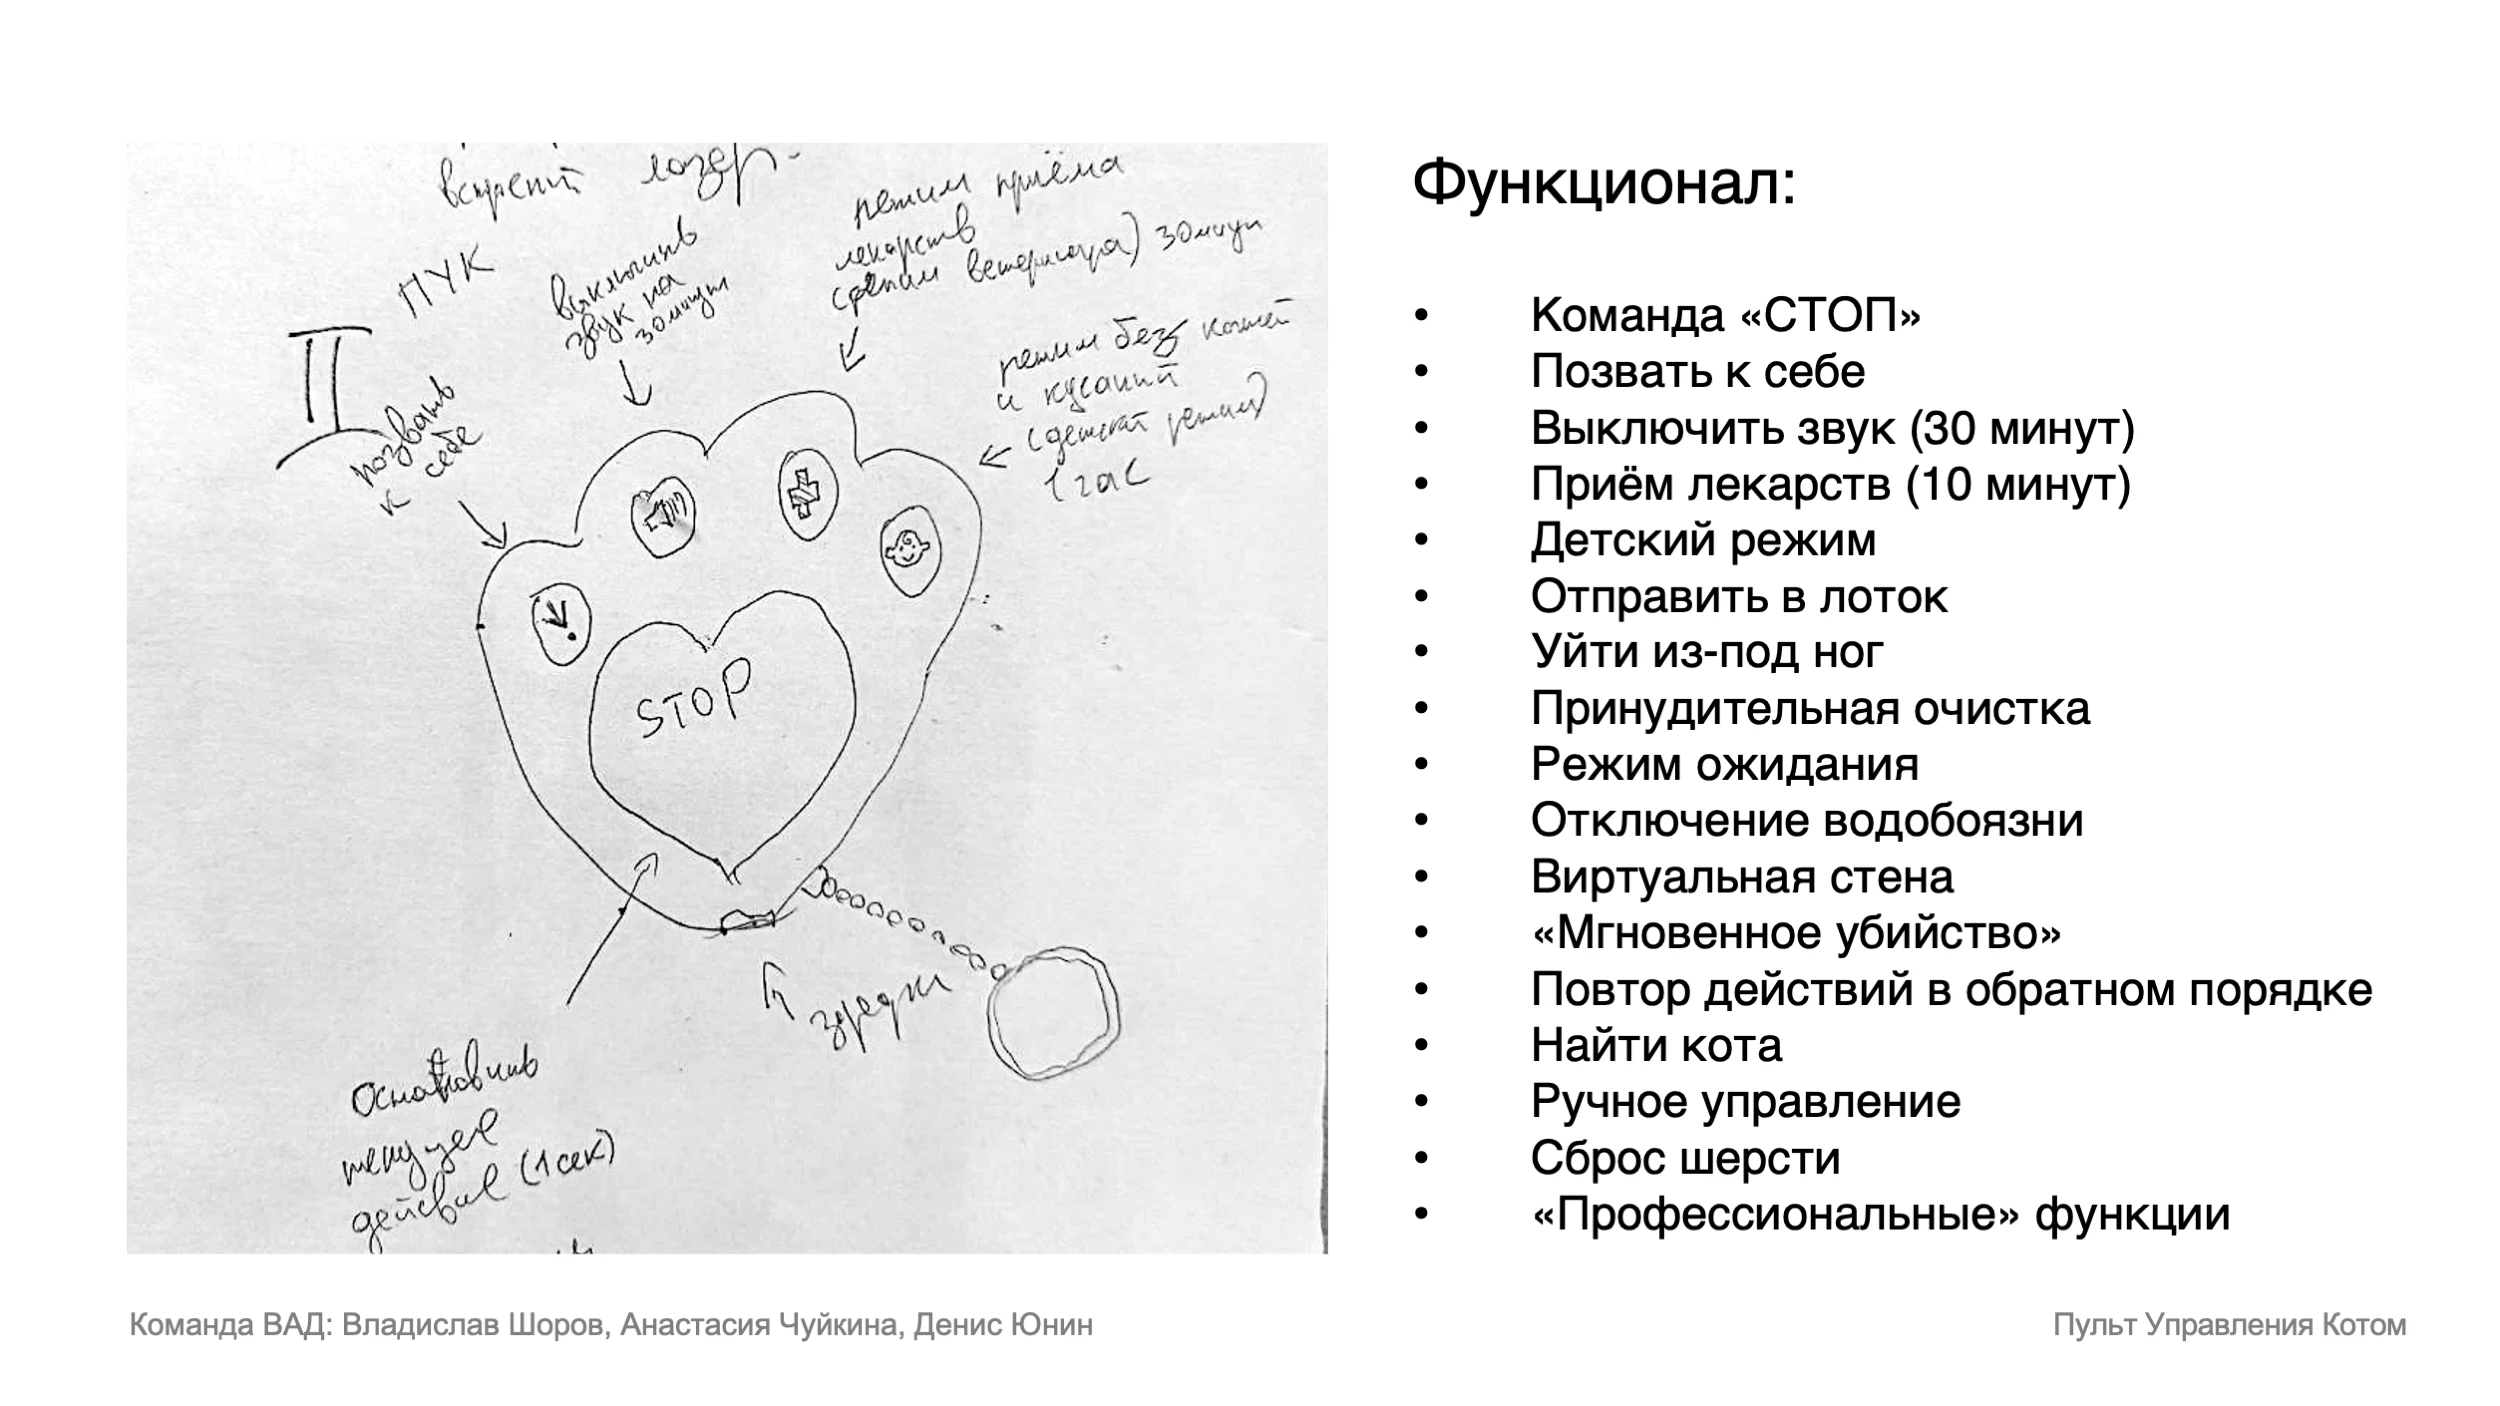 встреч лазер.
ПУК
выключить
звук на
30 минут
режим приёма
лекарств
(режим ветеринара) 30 минут
режим без когтей
и кусаний
(детский режим)
1 час
позвать
к себе
STOP
зарядки
Остановить
текущее
действие (1 сек)
Функционал:
• Команда «СТОП»
• Позвать к себе
• Выключить звук (30 минут)
• Приём лекарств (10 минут)
• Детский режим
• Отправить в лоток
• Уйти из-под ног
• Принудительная очистка
• Режим ожидания
• Отключение водобоязни
• Виртуальная стена
• «Мгновенное убийство»
• Повтор действий в обратном порядке
• Найти кота
• Ручное управление
• Сброс шерсти
• «Профессиональные» функции
Команда ВАД: Владислав Шоров, Анастасия Чуйкина, Денис Юнин
Пульт Управления Котом